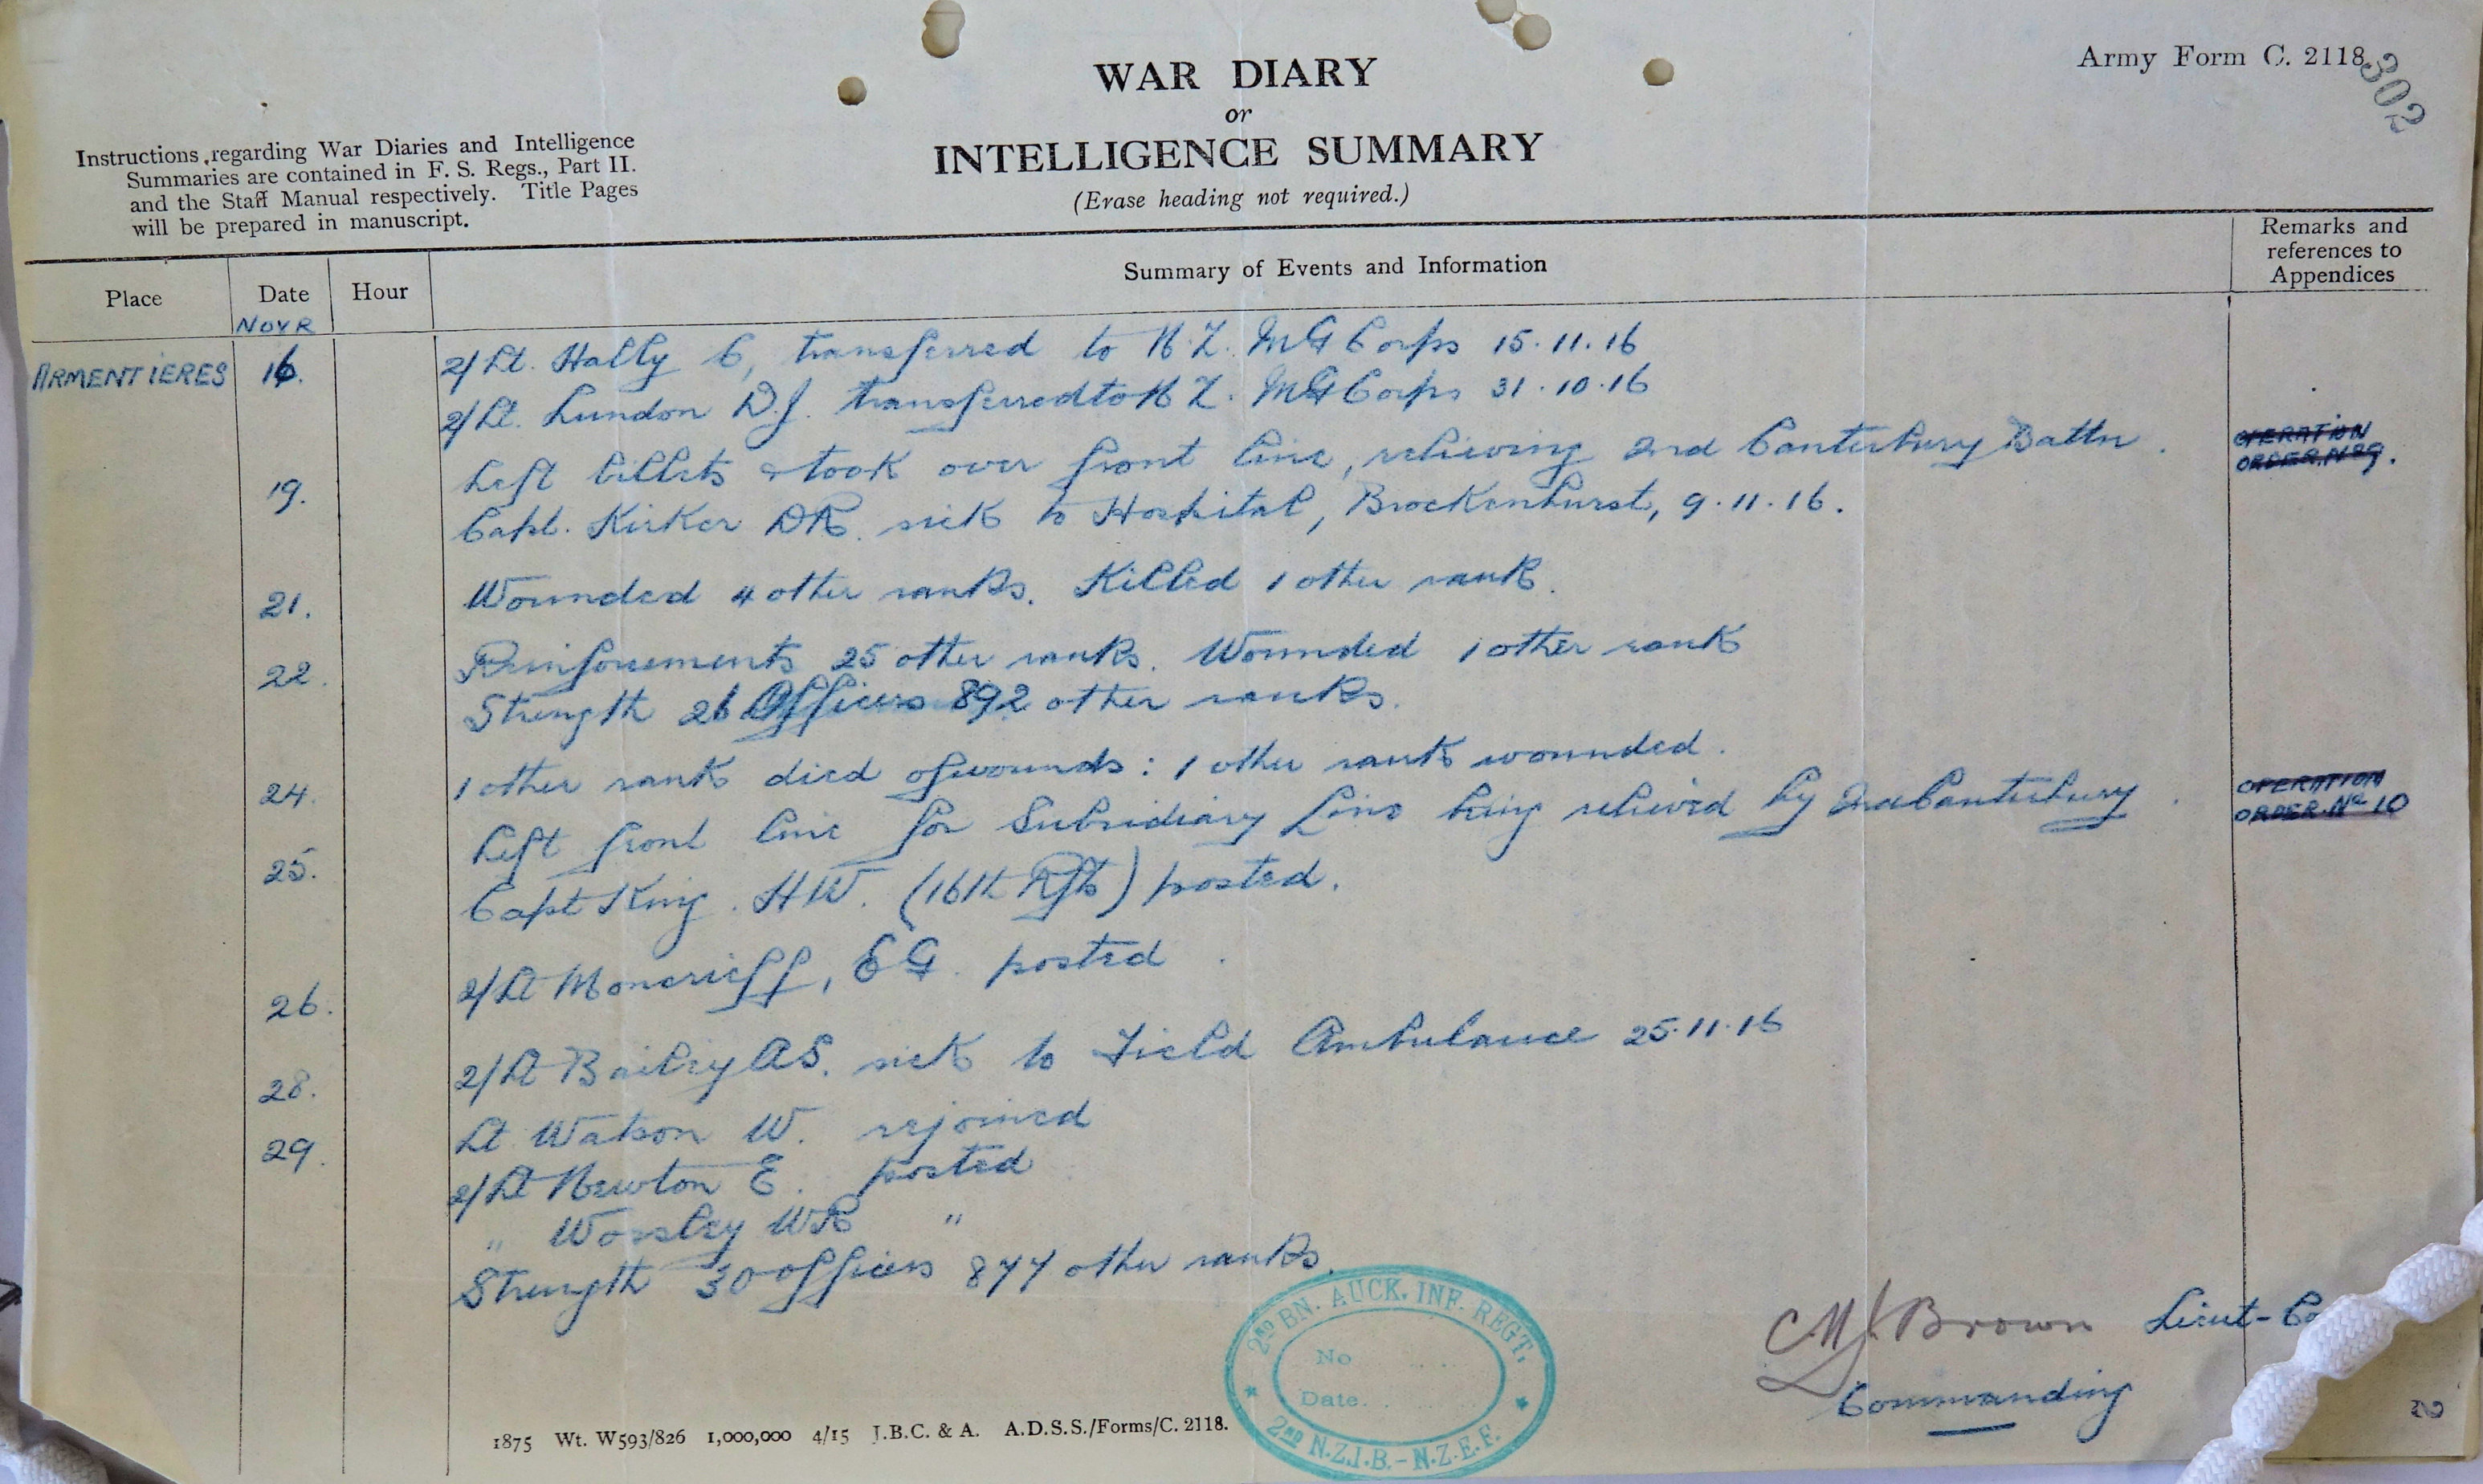 Army Form C. 2118.
302
WAR DIARY
or
INTELLIGENCE SUMMARY
(Erase heading not required.)
Instructions regarding War Diaries and Intelligence
Summaries are contained in F. S. Regs., Part II.
and the Staff Manual respectively. Title Pages
will be prepared in manuscript.
Place Date Hour Summary of Events and Information Remarks and references to Appendices
NOVR
ARMENTIERES 16. 2/Lt. Hally C, transferred to N.Z. MG Corps 15.11.16
2/Lt. Lundon D.J. transferred to N Z. MG Corps 31.10.16
19. Left billets & took over front line, relieving 2nd Canterbury Battn. OPERATION ORDER No 9.
Capt. Kirker DR. sick to Hospital, Brockenhurst, 9.11.16.
21. Wounded 4 other ranks. Killed 1 other rank.
22. Reinforcements 25 other ranks. Wounded 1 other rank
Strength 26 Officers 892 other ranks.
24. 1 other rank died of wounds: 1 other rank wounded.
25. Left front line for Subsidiary Line being relieved by 2nd Canterbury. OPERATION ORDER No 10
Capt King. HW. (16th Rfts) posted.
26. 2/Lt Moncrieff, EG. posted.
28. 2/Lt Bailey AS. sick to Field Ambulance 25.11.16
29. Lt Watson W. rejoined
2/Lt Newton E. posted
" Worsley WR "
Strength 30 officers 877 other ranks.
2ND BN. AUCK. INF. REGT.
No
Date
2ND N.Z.I.B. - N.Z.E.F.
Brown Lieut-Co
Commanding
1875 Wt. W593/826 1,000,000 4/15 J.B.C. & A. A.D.S.S./Forms/C. 2118.